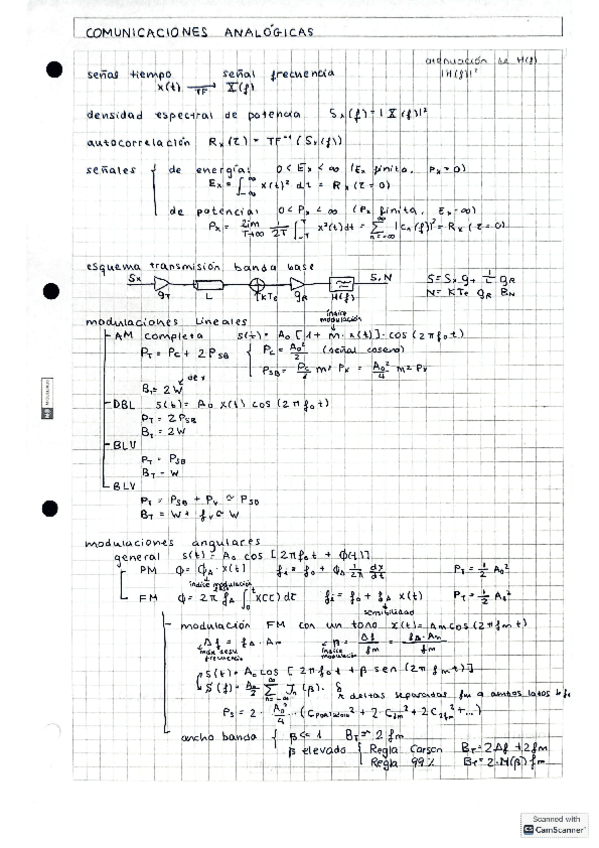 COMUNICACIONES ANALÓGICAS
atenuación de H(f)
|H(f)|²
señas tiempo señal frecuencia
x(t) → TF X(f)
densidad espectral de potencia Sx(f) = |X(f)|²
autocorrelación Rx(τ) = TF⁻¹(Sx(f))
señales de energía: 0 < Ex < ∞ (Ex finita, Px = 0)
Ex = ∫_{-∞}^{∞} x(t)² dt = Rx(τ=0)
de potencia: 0 < Px < ∞ (Px finita, Ex = ∞)
Px = lim T→∞ 1/2T ∫_{-T}^{T} x²(t)dt = Σ_{n=-∞}^{∞} |Cn(f)|² = Rx(τ=0)
esquema transmisión banda base
Sx gT L KTe gR H(f) S,N
S = Sx gT 1/L gR
N = KTe gR BN
modulaciones lineales
índice modulación
AM completa s(t) = A₀[1 + m·x(t)]·cos(2πf₀t)
PT = Pc + 2PSB
Pc = A₀²/2 (señal coseno)
PSB = Pc/2 m² Px = A₀²/4 m² Px
de x
BT = 2W
DBL s(t) = A₀ x(t) cos(2πf₀t)
PT = 2PSB
BT = 2W
BLU
PT = PSB
BT = W
BLV
PT = PSB + PV ≃ PSB
BT = W + fv ≃ W
modulaciones angulares
general s(t) = A₀ cos[2πf₀t + ϕ(t)]
PM ϕ = ϕΔ·x(t) fi = f₀ + ϕΔ 1/2π dx/dt PT = 1/2 A₀²
índice modulación
FM ϕ = 2π fΔ ∫₀ᵗ x(τ) dτ fi = f₀ + fΔ x(t) PT = 1/2 A₀²
sensibilidad
modulación FM con un tono x(t) = Am cos(2πfmt)
Δf = fΔ·Am β = Δf/fm = fΔ·Am/fm
máx desv frecuencia índice modulación
s(t) = A₀ cos[2πf₀t + β sen(2πfmt)]
S(f) = A₀/2 Σ_{n=-∞}^{∞} Jn(β)·δ
deltas separadas fm a ambos lados de f₀
Ps = 2·A₀²/4 ··· (Cportadora² + 2·Cfm² + 2C2fm² + ...)
ancho banda β << 1 BT ≃ 2fm
β elevado Regla Carson BT = 2Δf + 2fm
Regla 99% BT = 2·N(β) fm
Scanned with
CS CamScanner